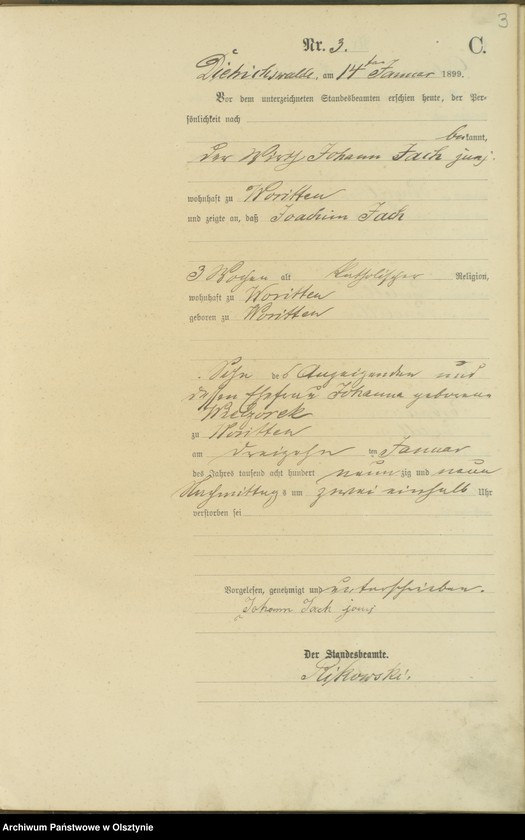 3
Nr. 3.
C.
Dietrichswalde, am 14ten Januar 1899.
Vor dem unterzeichneten Standesbeamten erschien heute, der Per-
sönlichkeit nach
bekannt,
der Wirth Johann Jach junj.
wohnhaft zu Woritten
und zeigte an, daß Joachim Jach
3 Wochen alt katholischer Religion,
wohnhaft zu Woritten
geboren zu Woritten
Sohn des Anzeigenden und
dessen Ehefrau Johanna geborene
Wieczorek
zu Woritten
am dreizehn ten Januar
des Jahres tausend acht hundert neun zig und neun
Nachmittags um zwei einhalb Uhr
verstorben sei
Vorgelesen, genehmigt und unterschrieben.
Johann Jach junj
Der Standesbeamte.
Rikowski.
Archiwum Państwowe w Olsztynie